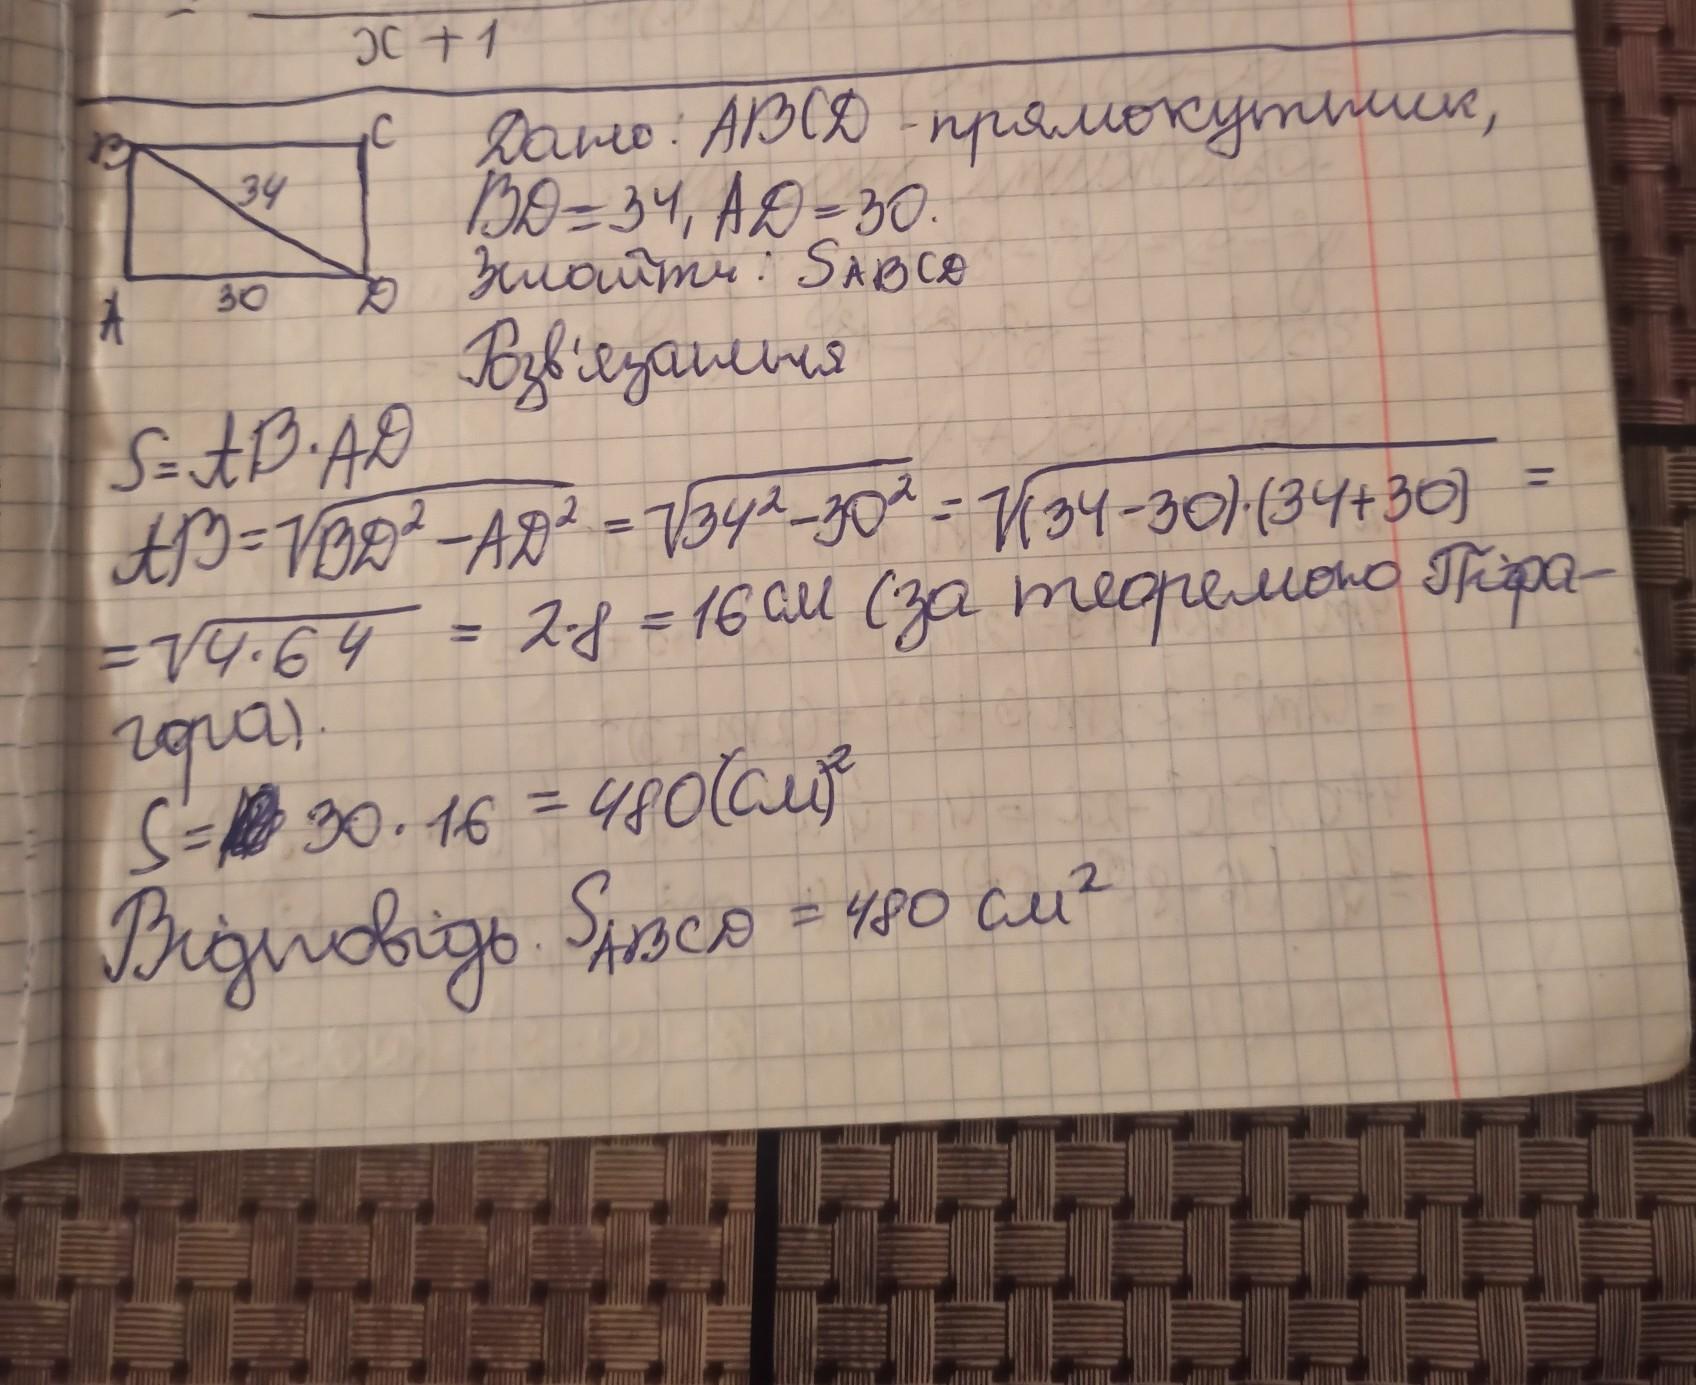 x + 1
B
C
34
30
A
D
Дано: ABCD - прямокутник,
BD = 34, AD = 30.
Знайти: SABCD
Розв'язання
S = AB · AD
AB = √BD² - AD² = √34² - 30² = √(34 - 30)·(34 + 30) =
= √4 · 64 = 2·8 = 16 см (за теоремою Піфа-
гора).
S = 30 · 16 = 480 (см)²
Відповідь. SABCD = 480 см²